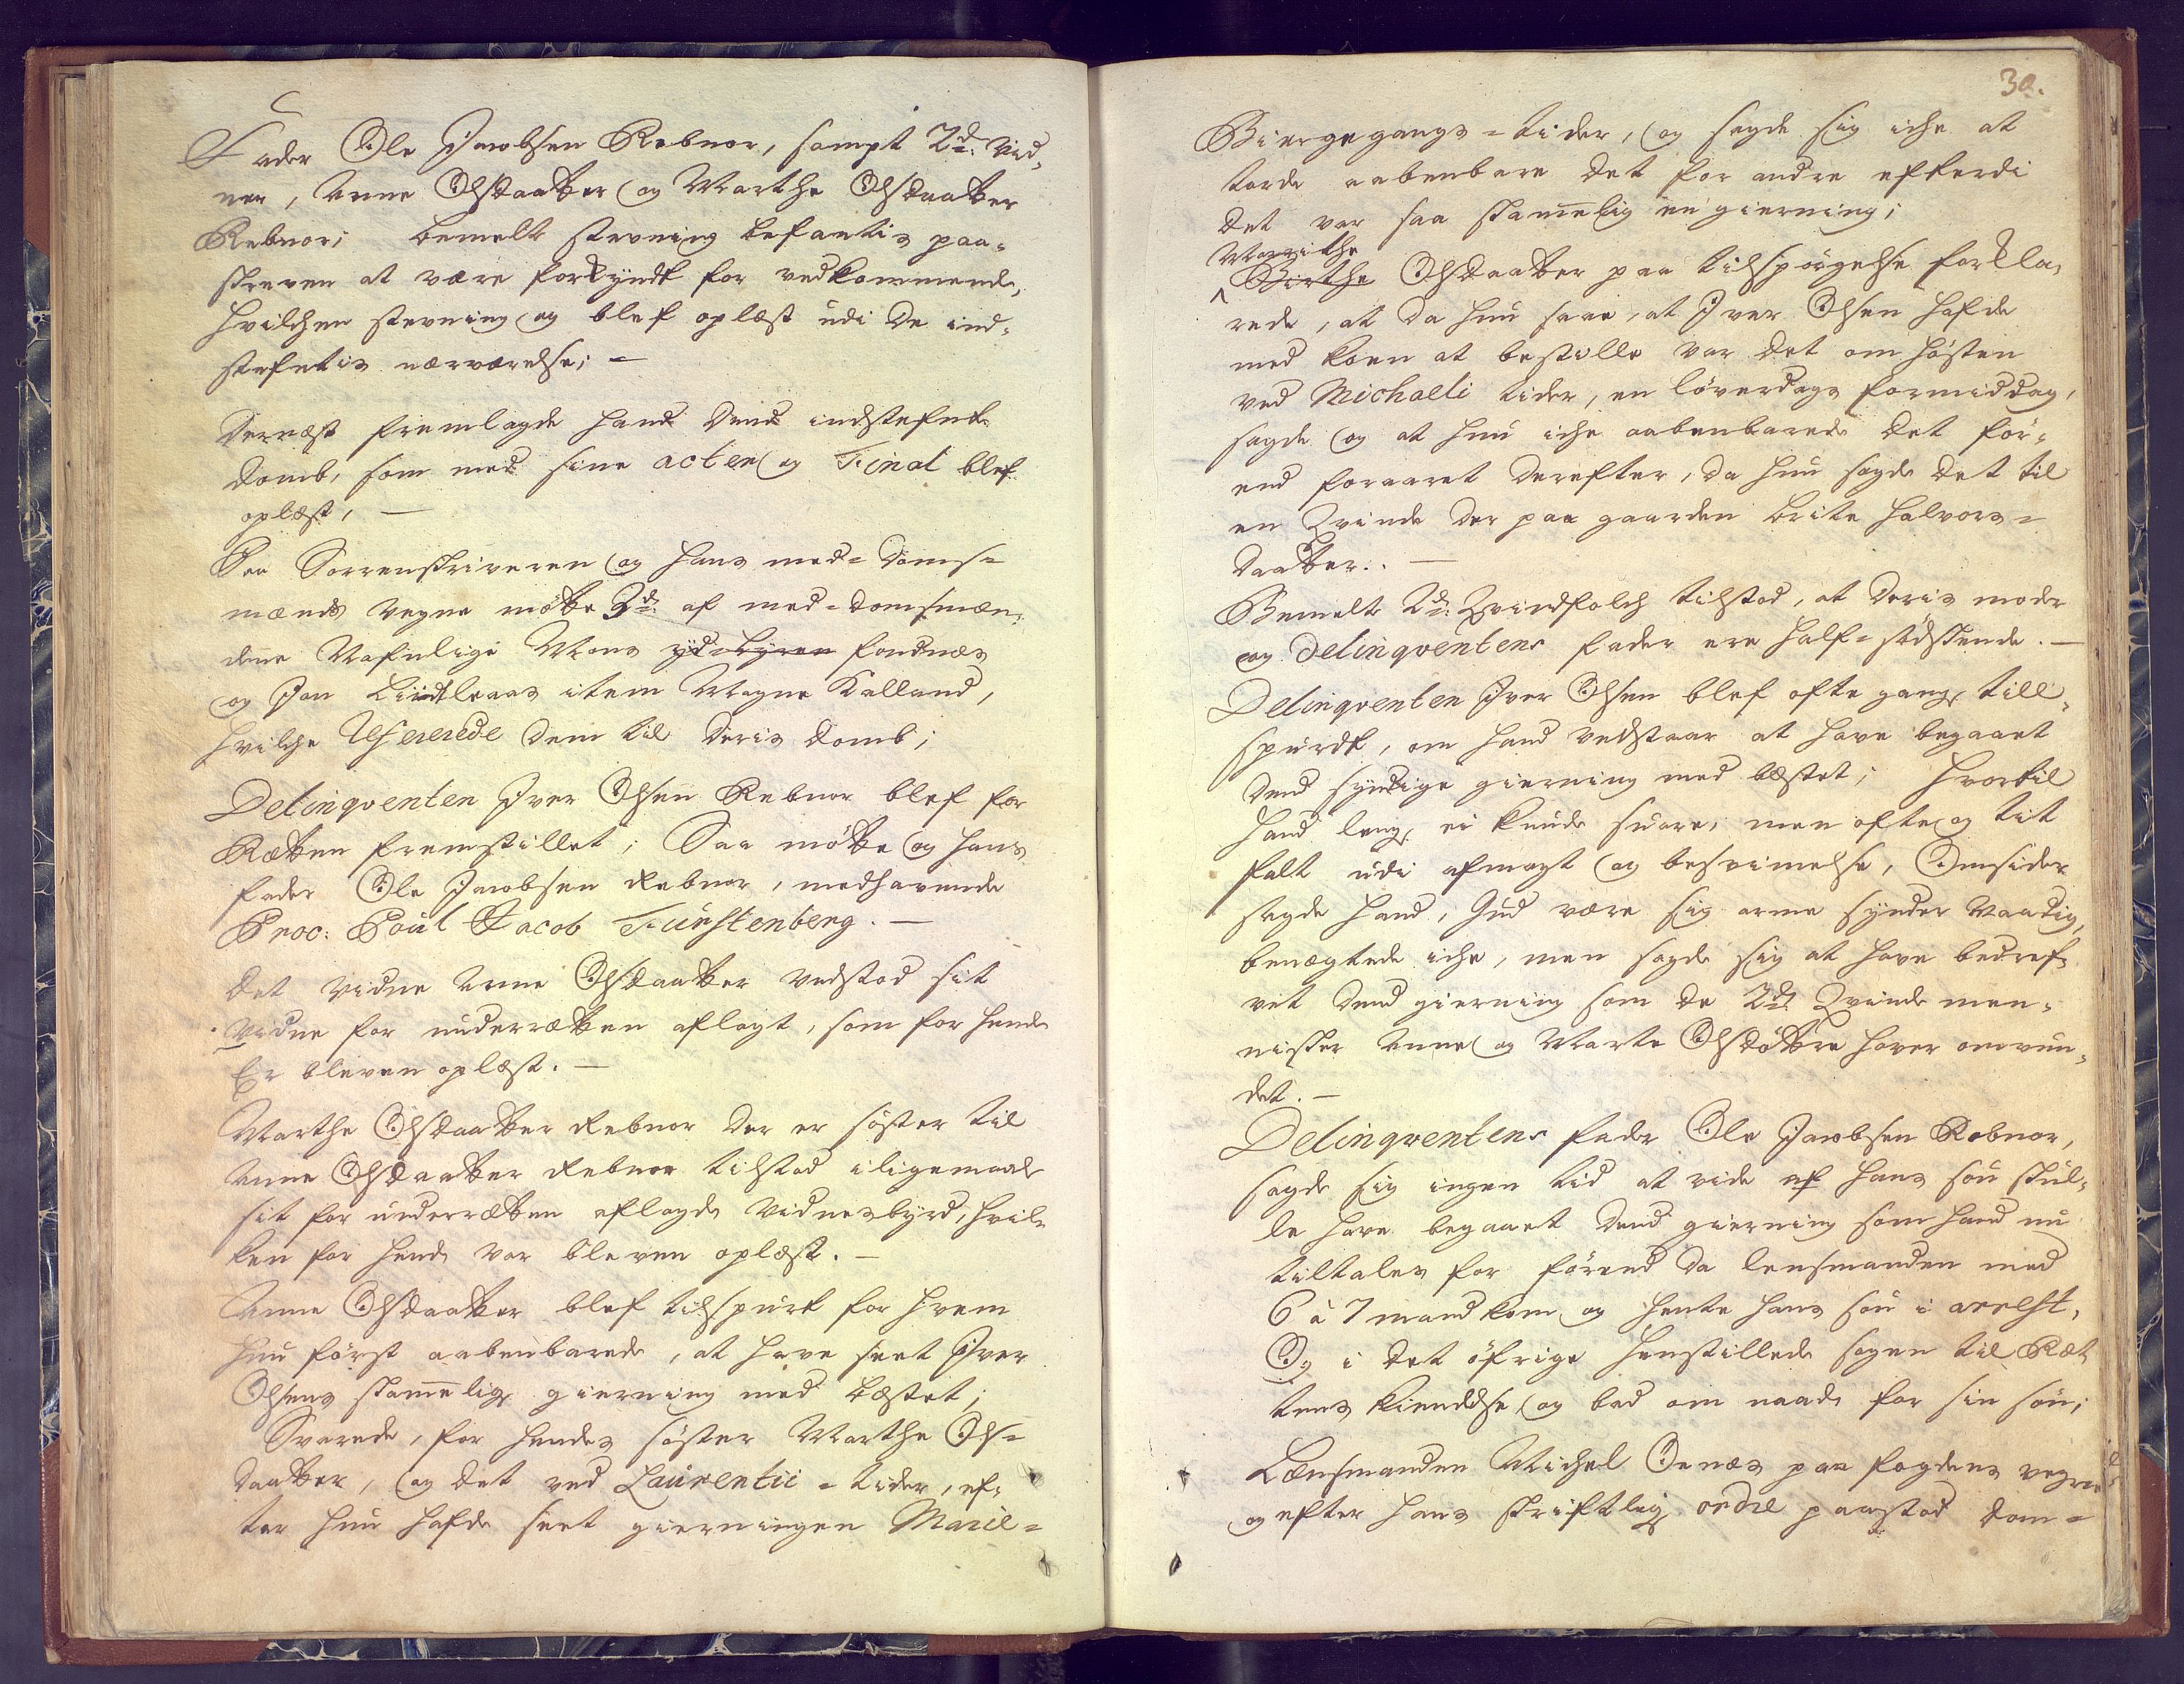 Fader Ole Jacobsen Rebnor, sampt 2de: vid-
ner, Anne Olsdaatter og Marthe Olsdaatter
Rebnor; bemelte stevning befantis paa-
skreven at være forkyndt for vedkommende,
hvilchen stevning og blef oplæst udi de ind-
stefntis nærværelse; -
Dernæst fremlagde hand dend indstefnte
domb, som med sine acter og Final blef
oplæst, -
Paa Sorrenskriveren og hans med-doms-
mænds vegne møtte 3de: af med-domsmæn-
dene Nafnlige Mons Fondnæs
og Jon Lindtleaas item Magne Kalland,
hvilche refererede dem til deris domb;
Delinqventen Iver Olsen Rebnor blef for
Rætten fremstillet; Saa møtte og hans
fader Ole Jacobsen Rebnor, medhavende
Proc: Poul Jacob Fürstenberg. -
Det vidne Anne Olsdaatter vedstod sit
vidne for underrætten aflagt, som for hende
Er bleven oplæst. -
Marthe Olsdaatter Rebnor der er søster til
Anne Olsdaatter Rebnor tilstod iligemaade
sit for underrætten aflagde vidnesbyrd, hvil-
ken for hende var bleven oplæst. -
Anne Olsdaatter blef tilspurt for hvem
hun først aabenbarede, at have seet Iver
Olsens skammelige gierning med bæstet;
Svarede, for hendes søster Marthe Ols-
daatter, og det ved Laurentii-tider, ef-
ter hun hafde seet gierningen Marie-
30.
Biergegangs-tider, og sagde sig iche at
torde aabenbare det for andre efterdi
det var saa skammelig en gierning;
Marithe
Birthe Olsdaatter paa tilspørgelse forkla-
rede, at da hun saae, at Iver Olsen hafde
med koen at bestille var det om høsten
ved Michaeli tider, en løverdags formiddag,
sagde og at hun iche aabenbarede det før-
end foraaret derefter, da hun sagde det til
en Qvinde der paa gaarden Brite Halvors-
daatter. -
Bemelte 2de: Qvindfolch tilstod, at deris moder
og Delinqventens fader ere half-sødskende. -
Delinqventen Iver Olsen blef ofte gange till-
spurdt, om hand vedstaar at have begaaet
dend syndige gierning med bæstet; hvortil
hand lenge ei kunde svare; men ofte og tit
falt udi afmagt og besvimelse, Omsider
sagde hand, Gud være sig arme synder naadig,
benægtede iche, men sagde sig at have bedref-
vet dend gierning som de 2de Qvinde men-
nisker Anne og Marte Olsdøttre haver omvun-
det. -
Delinqventens fader Ole Jacobsen Rebnor,
sagde sig ingen tid at vide af hans søn skul-
le have begaaet dend gierning som hand nu
tiltales for førend da lensmanden med
6 à 7 mand kom og hente hans søn i arrest,
Og i det øfrige henstillede sagen til Ræt-
tens kiendelse, og bad om naade for sin søn;
Lænsmanden Michel Oenæs paa fogdens vegne
og efter hans skriftlig ordre paastod dom-